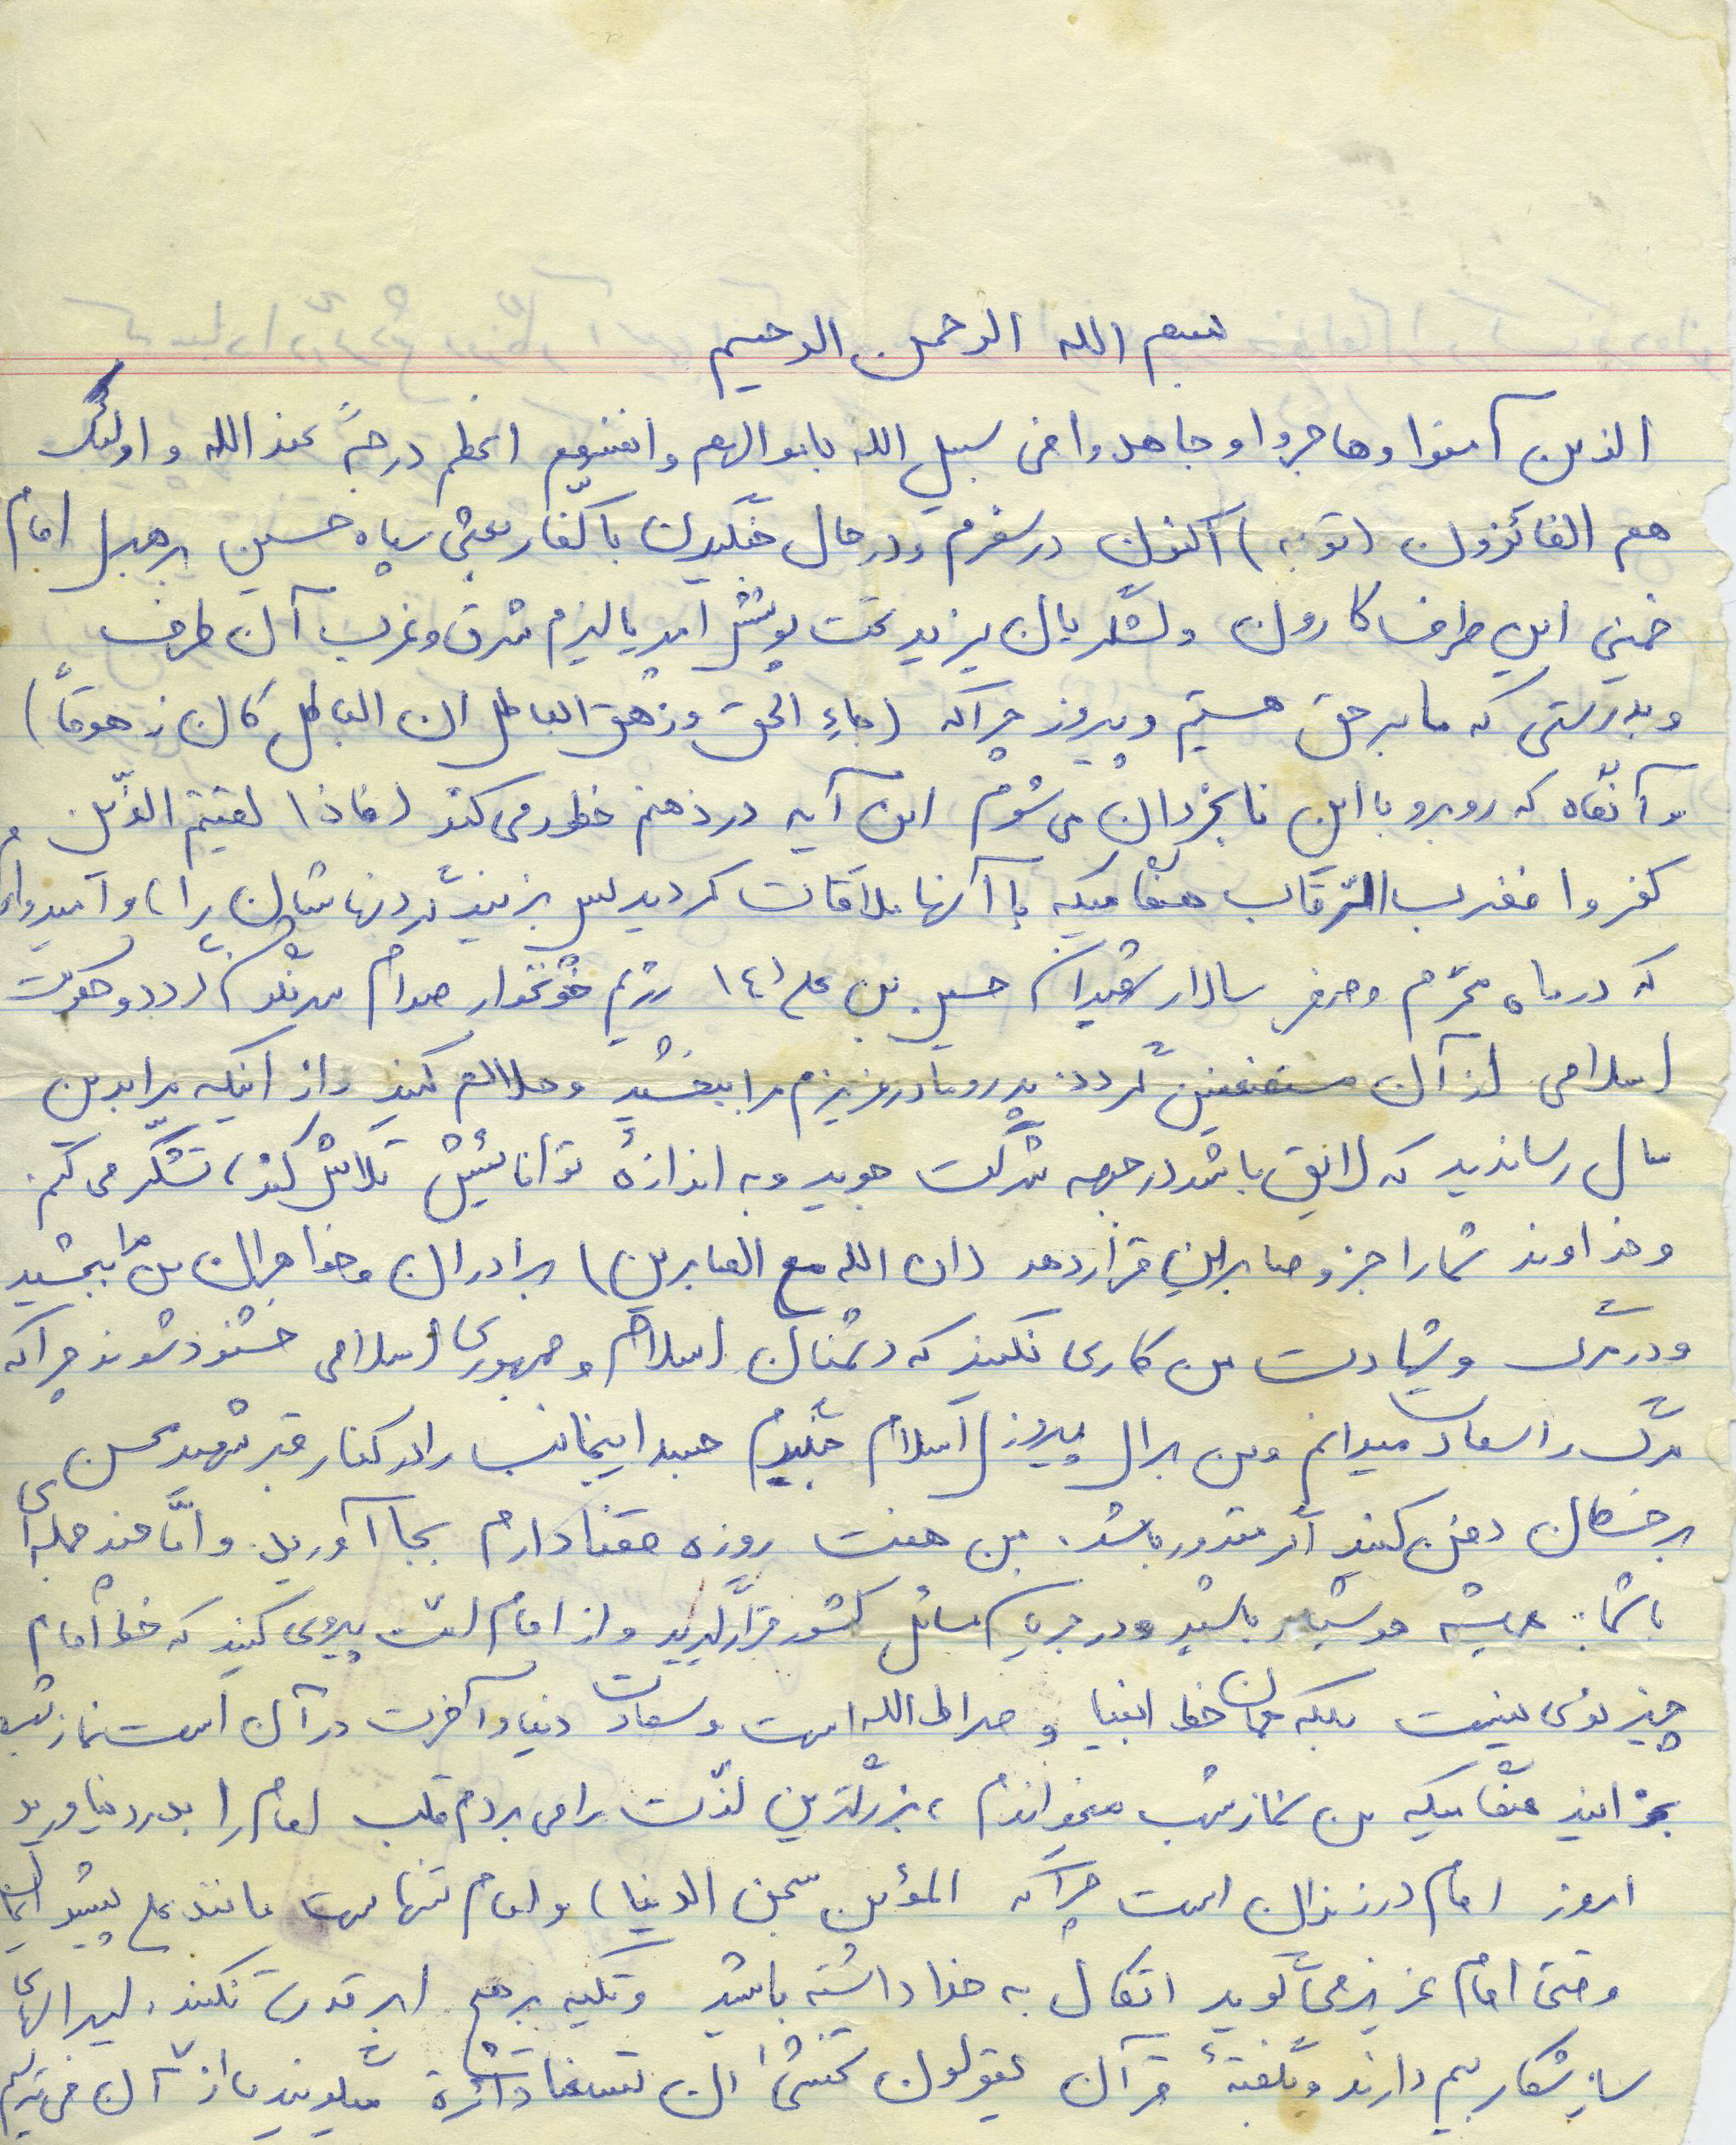 بسم الله الرحمن الرحیم
الذین آمنوا وهاجروا وجاهدوا فی سبیل الله باموالهم وانفسهم اعظم درجهً عند الله و اولئک
هم الفائزون (توبه) اکنون در سفرم ودر حال جنگیدن با کفّار بعثی سپاه حسین برهبری امام
خمینی این طرف کارون ولشگریان یزید تحت پوشش امپریالیزم شرق وغرب آن طرف
وبدرستی که ما بر حق هستیم وپیروز چراکه (جاءِ الحق وزهق الباطل ان الباطل کان زهوقاً)
وآنگاه که روبرو با این نابخردان می شوم این آیه در ذهنم خطور می کند (فاذا لقیتم الذّین
کفروا فضرب الرّقاب هنگامیکه با آنها ملاقات کردید پس بزنید گردنهاشان را) و امیدوارم
که در ماه محرّم وصفر سالار شهیدان حسین بن علی (ع) رژیم خونخوار صدام سرنگون گردد وحکومت
اسلامی از آن مستضعفین گردد. پدر ومادر عزیزم مرا ببخشید وحلالم کنید واز اینکه مرا بدین
سال رساندید که لایق باشد در جبهه شرکت جوید وبه اندازهٔ توانائیش تلاش کند، تشکّر می کنم.
وخداوند شما را جزو صابرین قرار دهد (ان الله مع الصابرین) برادران وخواهران من مرا ببخشید
ودر مرگ وشهادت من کاری نکنید که دشمنان اسلام وجمهوری اسلامی خشنود شوند چراکه
مرگ را سعادت میدانم ومن برای پیروزی اسلام جنگیدم جسد اینجانب را در کنار قبر شهید محسن
دفن کنید اگر مقدور باشد. من هفت روزه قضا دارم بجا آورید. وامّا چند جمله ای
با شما: همیشه هوشیار باشید ودر جریان مسائل کشور قرار گیرید واز امام امّت پیروی کنید که خط امام
چیز نوئی نیست بلکه همان خط انبیا و صراط الله است وسعادت دنیا وآخرت در آن است نماز شب
بخوانید هنگامیکه من نماز شب میخواندم، بزرگترین لذّت را می بردم قلب امام را بدرد نیاورید
امروز امام در زندان است چراکه المؤمن سجن الدنیا) وامام تنهاست مانند علی
وقتی امام عزیز می گوید اتکال به خدا داشته باشید وتکیه بر هیچ ابر قدرت نکنید، لیبرالهای
سازشکار بیم دارند وبگفتهٔ قرآن یقولون نخشی ان تصیبنا دائرة میگویند ما از آن می ترسیم